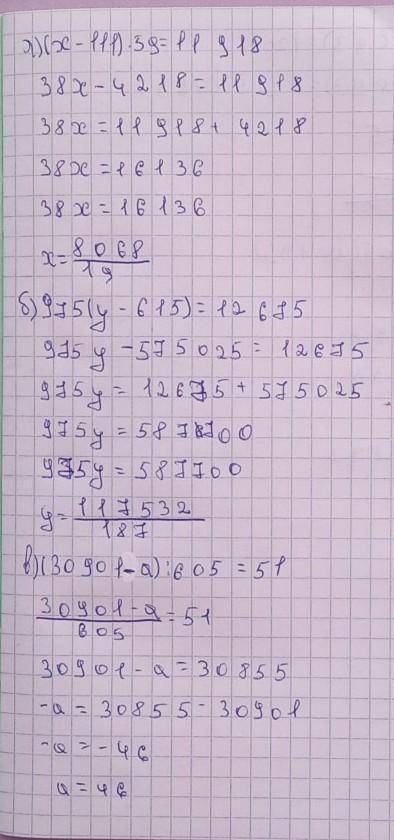 а)(x-111)·39=11 918
38x-4218=11918
38x=11918+4218
38x=16136
38x=16136
x=8068/19
б)975(y-615)=12675
975y-575025=12675
975y=12675+575025
975y=587700
975y=587700
y=117532/187
в)(30901-а):605=51
30901-а/605=51
30901-а=30855
-а=30855-30901
-а=-46
а=46